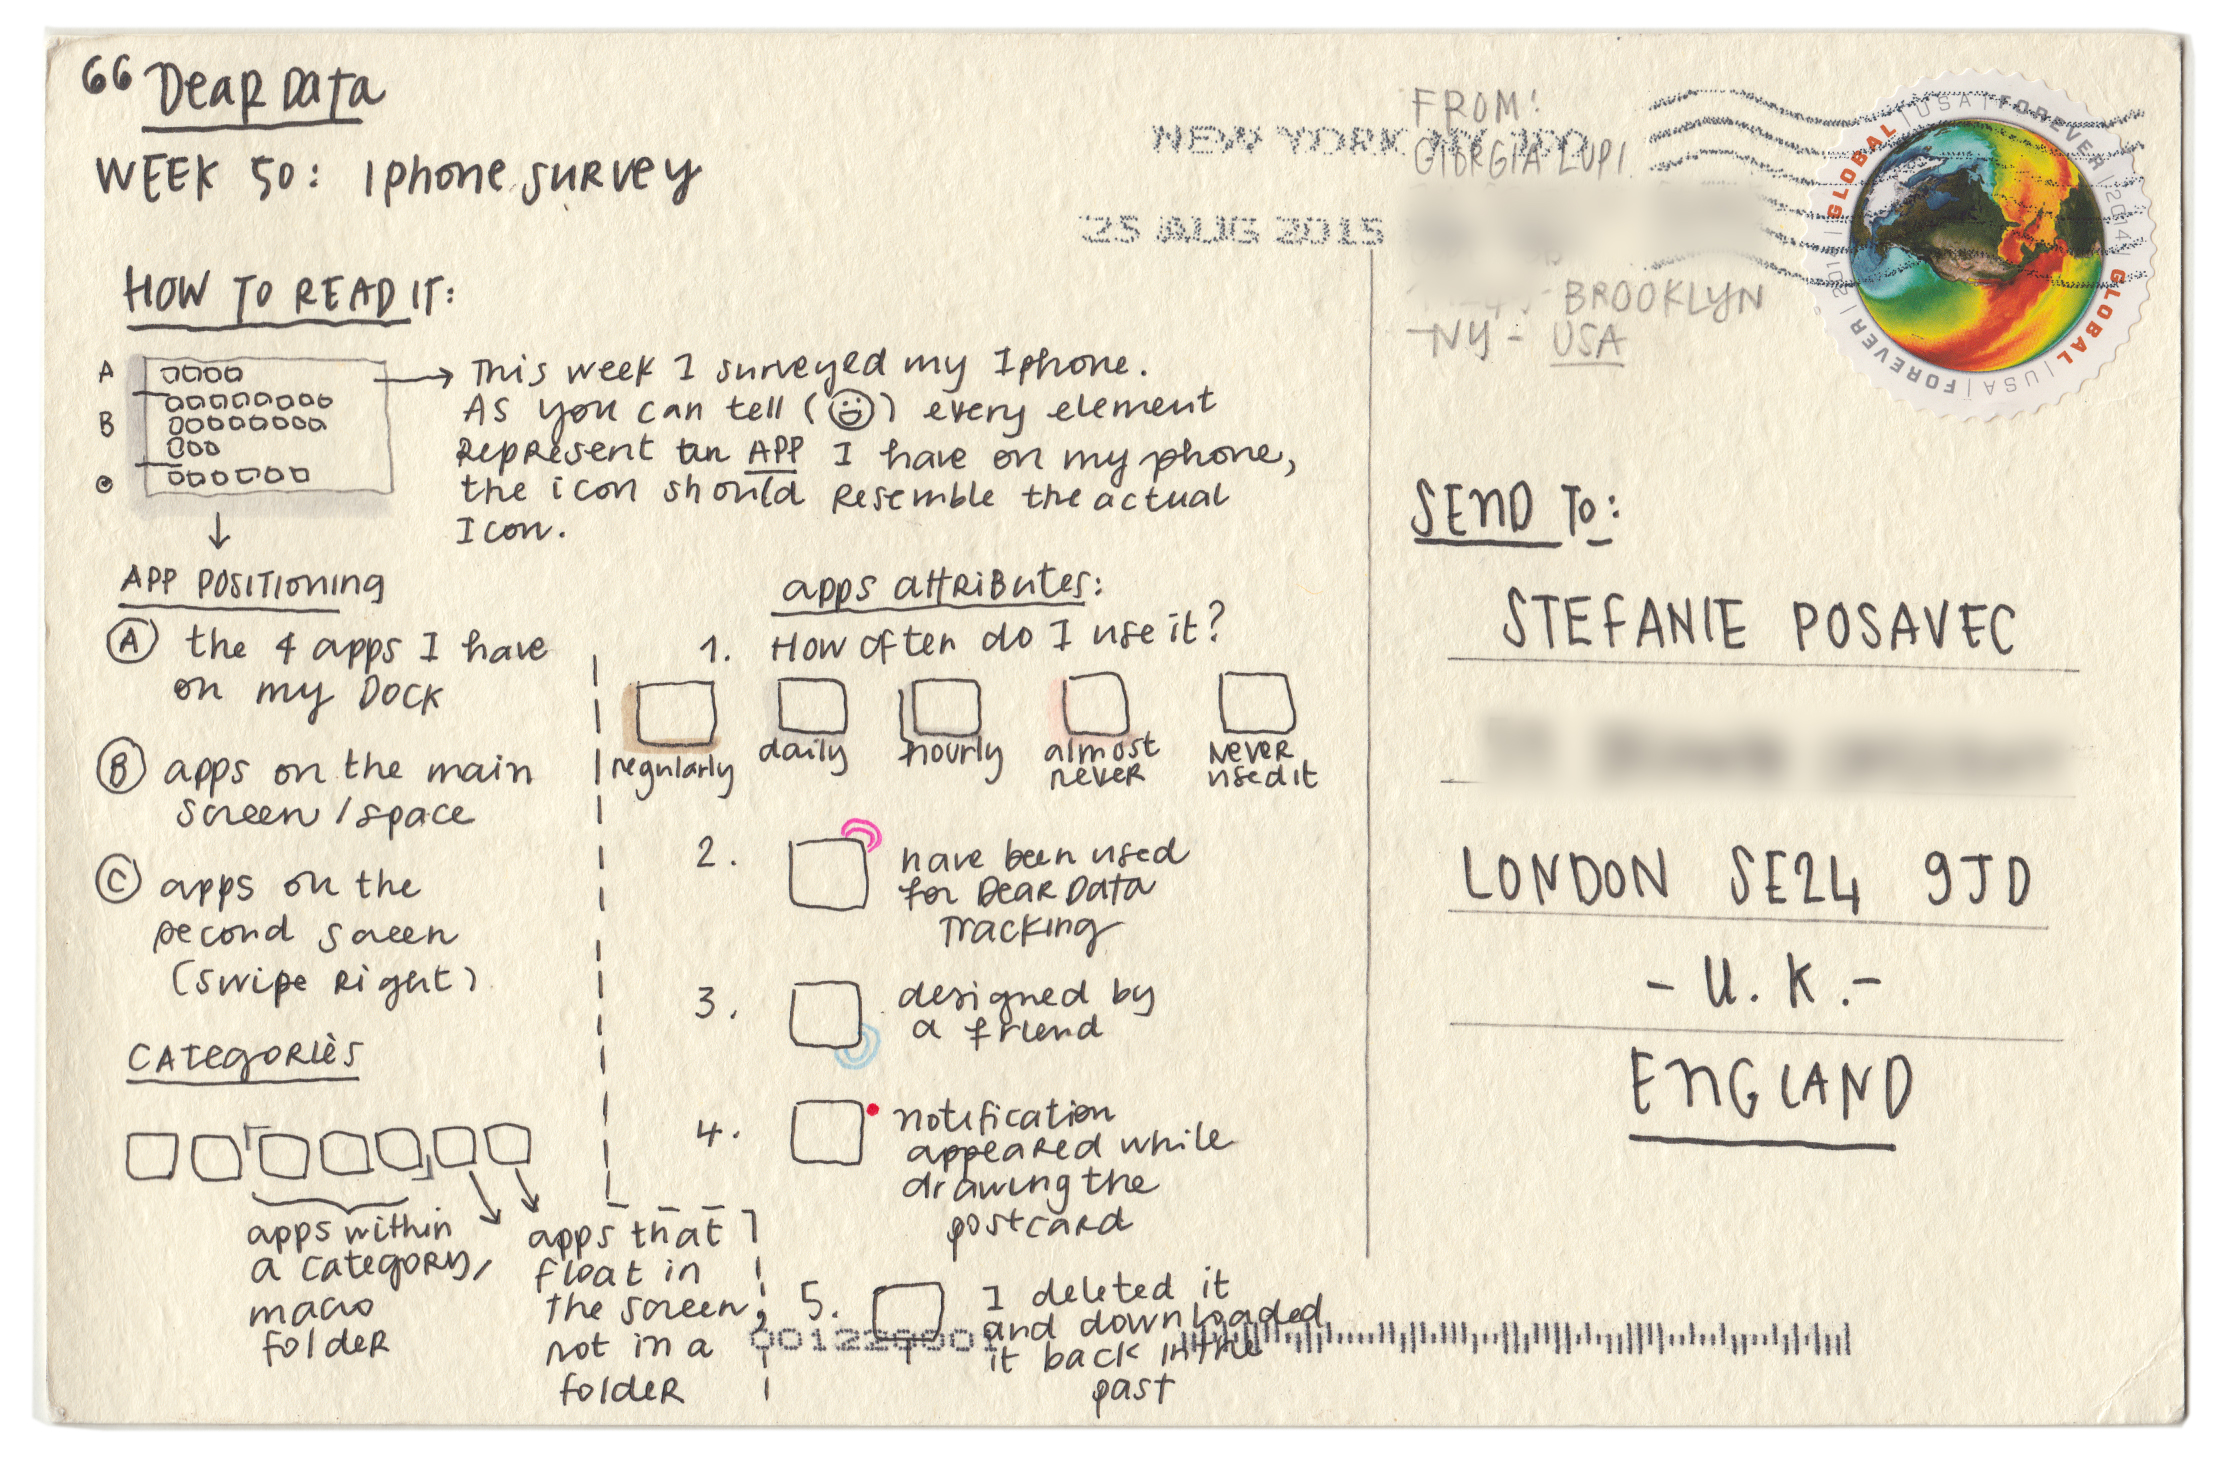 66 Dear Data
WEEK 50: Iphone survey
HOW TO READ IT:
A
B
C
This week I surveyed my Iphone.
As you can tell ( ) every element
represent an APP I have on my phone,
the icon should resemble the actual
Icon.
APP POSITIONING
A the 4 apps I have
on my DOCK
B apps on the main
screen / space
C apps on the
second screen
(swipe right)
CATEGORIES
apps within
a category,
macro
folder
apps that
float in
the screen,
not in a
folder
apps attributes:
1. How often do I use it?
regularly
daily
hourly
almost
never
never
used it
2. have been used
for Dear Data
Tracking
3. designed by
a friend
4. notification
appeared while
drawing the
postcard
5. I deleted it
and downloaded
it back in the
past
NEW YORK NY 100
25 AUG 2015
FROM:
GIORGIA LUPI
BROOKLYN
NY - USA
GLOBAL | USA | FOREVER | 2014 | GLOBAL | USA | FOREVER | 2014 |
SEND TO:
STEFANIE POSAVEC
LONDON SE24 9JD
- U.K. -
ENGLAND